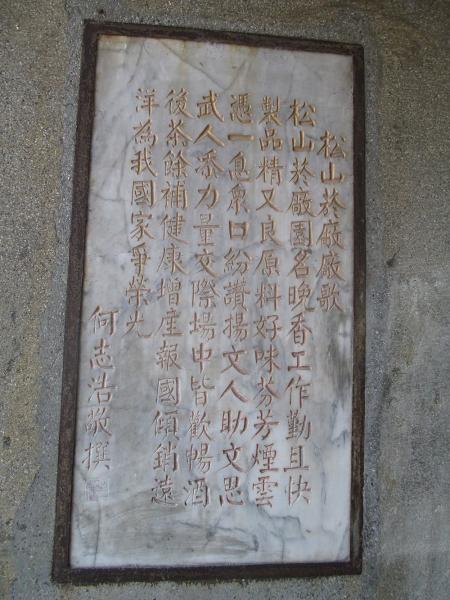 松山菸廠廠歌
松山菸廠園名晚香工作勤且快
製品精又良原料好味芬芳煙雲
憑一息衆口紛讚揚文人助文思
武人添力量交際場中皆歡暢酒
後茶餘補健康增產報國傾銷遠
洋為我國家爭榮光
何志浩敬撰